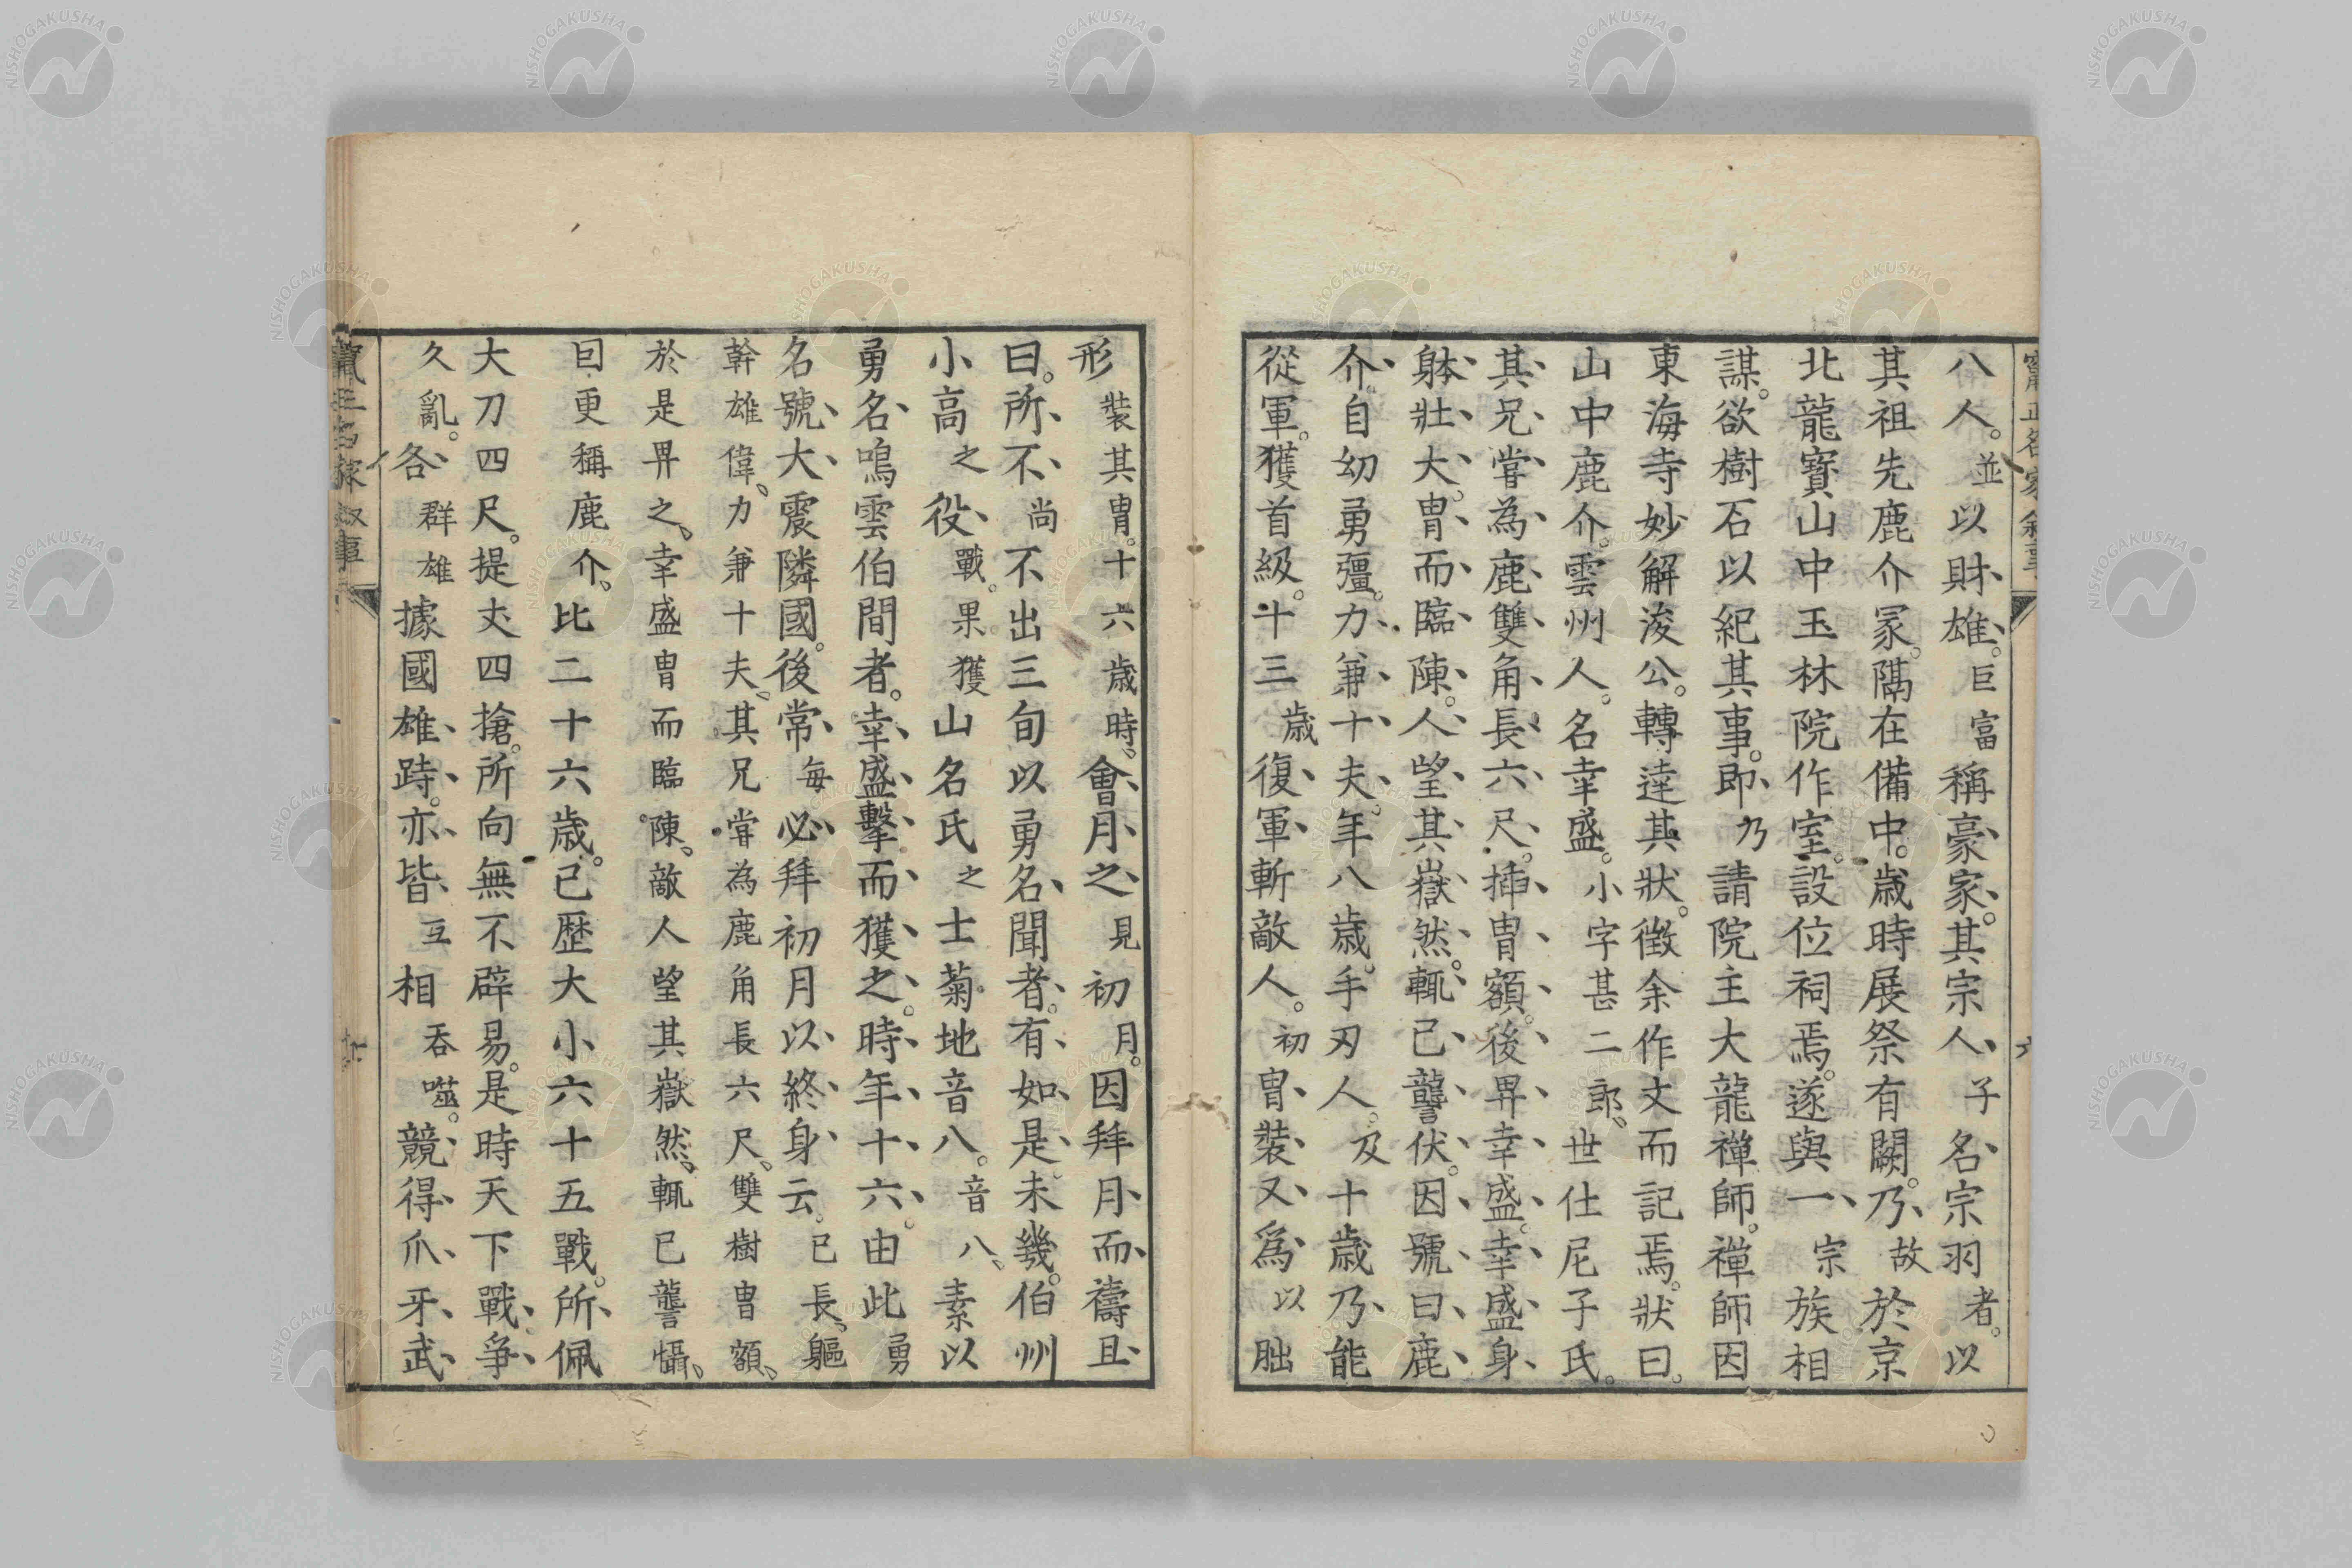 八人。並以財雄。巨富稱豪家。其宗人子名宗羽者。以
其祖先鹿介冢。隔在備中。歲時展祭有闕。乃故於京
北龍寶山中玉林院作室。設位祠焉。遂與一宗族相
謀。欲樹石以紀其事。即乃請院主大龍禪師。禪師因
東海寺妙解浚公。轉達其狀。徵余作文而記焉。狀曰。
山中鹿介。雲州人。名幸盛。小字甚二郎、世仕尼子氏。
其兄嘗為鹿雙角長六尺。插冑額。後畀幸盛。幸盛身
躰壯大。冑而臨陳。人望其嶽然。輒已讋伏。因號曰鹿
介。自幼勇彊。力兼十夫。年八歲。手刃人。及十歲乃能
從軍。獲首級。十三歲復軍斬敵人。初冑裝又爲以朏
形裝其冑。十六歲時、會月之見初月。因拜月而禱且
曰。所不尚不出三旬以勇名聞者。有如是。未幾。伯州
小高之役、戰。果獲山名氏之士菊地音八。音八、素以
勇名鳴雲伯間者。幸盛擊而獲之。時年十六。由此勇
名號大震隣國。後常每必拜初月以終身云。已長、軀
幹雄偉、力兼十夫、其兄嘗為鹿角長六尺、雙樹冑額、
於是畀之、幸盛冑而臨陳、敵人望其嶽然、輒已讋懾、
囙更稱鹿介、比二十六歲。已歷大小六十五戰。所佩
大刀四尺。提丈四搶。所向無不辟易。是時天下戰爭
久亂。各群雄據國雄跱。亦皆互相吞噬。競得爪牙武
甯正名家敘事
NISHOGAKUSHA